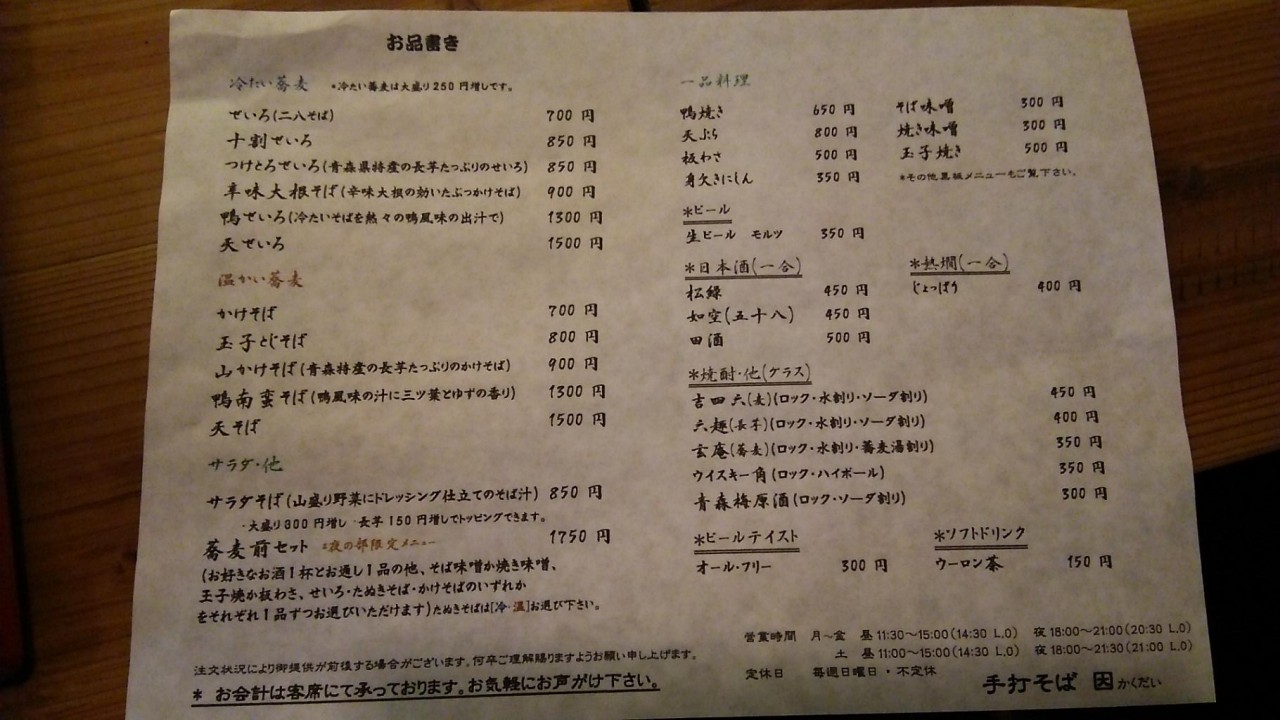 お品書き
冷たい蕎麦 *冷たい蕎麦は大盛り250円増しです。
せいろ(二八そば) 700円
十割せいろ 850円
つけとろせいろ(青森県特産の長芋たっぷりのせいろ) 850円
辛味大根そば(辛味大根の効いたぶっかけそば) 900円
鴨せいろ(冷たいそばを熱々の鴨風味の出汁で) 1300円
天せいろ 1500円
温かい蕎麦
かけそば 700円
玉子とじそば 800円
山かけそば(青森特産の長芋たっぷりのかけそば) 900円
鴨南蛮そば(鴨風味の汁に三ツ葉とゆずの香り) 1300円
天そば 1500円
サラダ・他
サラダそば(山盛り野菜にドレッシング仕立てのそば汁) 850円
・大盛り300円増し ・長芋150円増しでトッピングできます。
蕎麦前セット *夜の部限定メニュー 1750円
(お好きなお酒1杯とお通し1品の他、そば味噌か焼き味噌、
玉子焼か板わさ、せいろ・たぬきそば・かけそばのいずれか
をそれぞれ1品ずつお選びいただけます)たぬきそばは[冷・温]お選び下さい。
一品料理
鴨焼き 650円
天ぷら 800円
板わさ 500円
身欠きにしん 350円
そば味噌 300円
焼き味噌 300円
玉子焼き 500円
*その他黒板メニューもご覧下さい。
*ビール
生ビール モルツ 350円
*日本酒(一合)
松緑 450円
如空(五十八) 450円
田酒 500円
*熱燗(一合)
じょっぱり 400円
*焼酎・他(グラス)
吉四六(麦)(ロック・水割り・ソーダ割り) 450円
六趣(長芋)(ロック・水割り・ソーダ割り) 400円
玄庵(蕎麦)(ロック・水割り・蕎麦湯割り) 350円
ウイスキー角(ロック・ハイボール) 350円
青森梅原酒(ロック・ソーダ割り) 300円
*ビールテイスト
オール・フリー 300円
*ソフトドリンク
ウーロン茶 150円
注文状況により御提供が前後する場合がございます。何卒ご理解賜りますようお願い申し上げます。
* お会計は客席にて承っております。お気軽にお声がけ下さい。
営業時間 月～金 昼11:30～15:00(14:30 L.O) 夜18:00～21:00(20:30 L.O)
土 昼11:00～15:00(14:30 L.O) 夜18:00～21:30(21:00 L.O)
定休日 毎週日曜日・不定休
手打そば かくだい